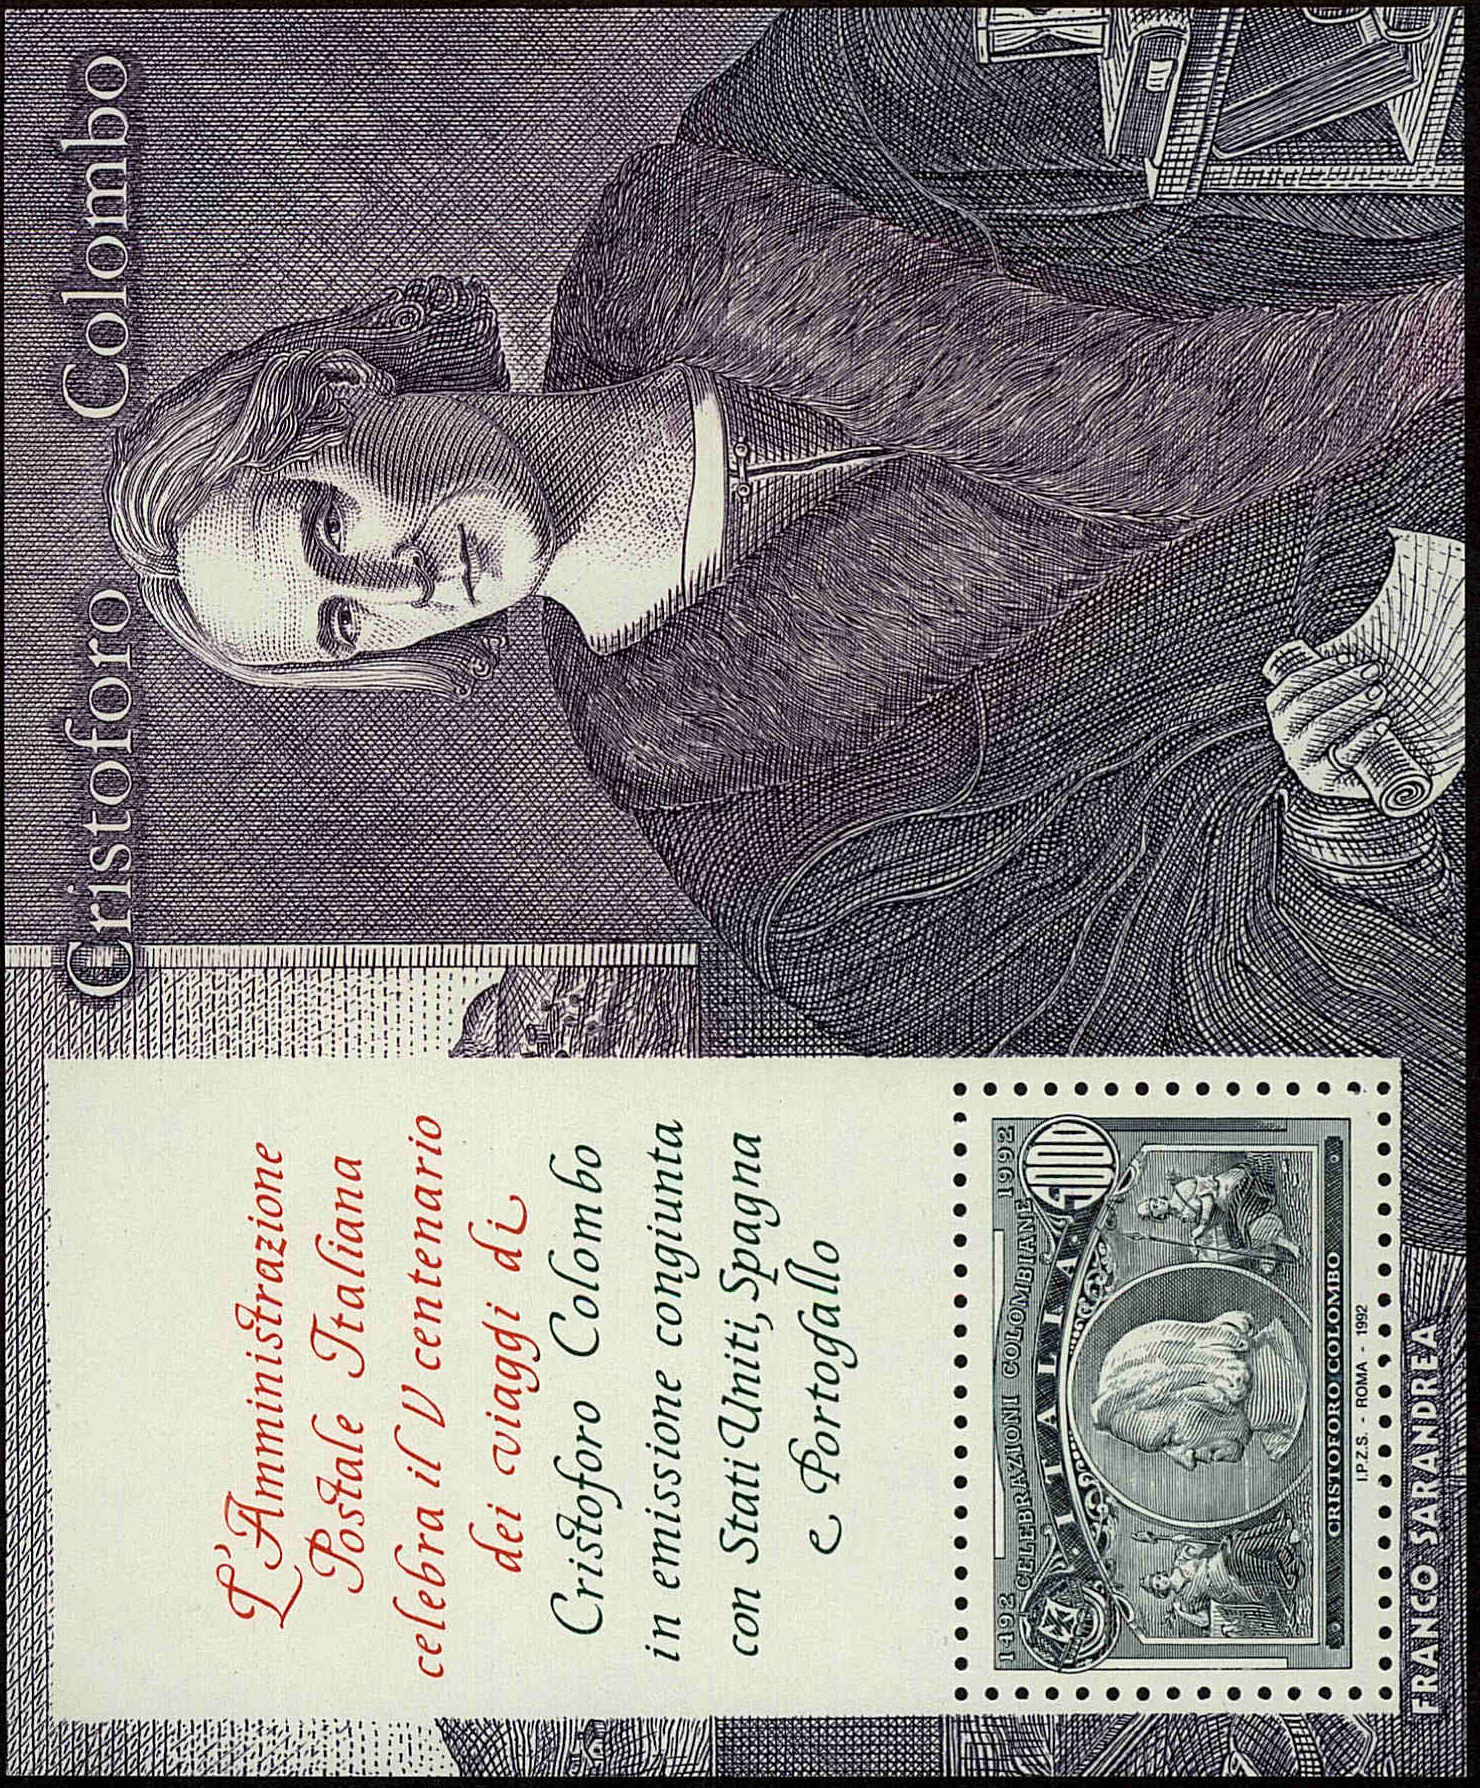 Cristoforo Colombo
L'Amministrazione
Postale Italiana
celebra il V centenario
dei viaggi di
Cristoforo Colombo
in emissione congiunta
con Stati Uniti, Spagna
e Portogallo
1492 CELEBRAZIONI COLOMBIANE 1992
ITALIA
CRISTOFORO COLOMBO
I.P.Z.S. - ROMA - 1992
FRANCO SARANDREA